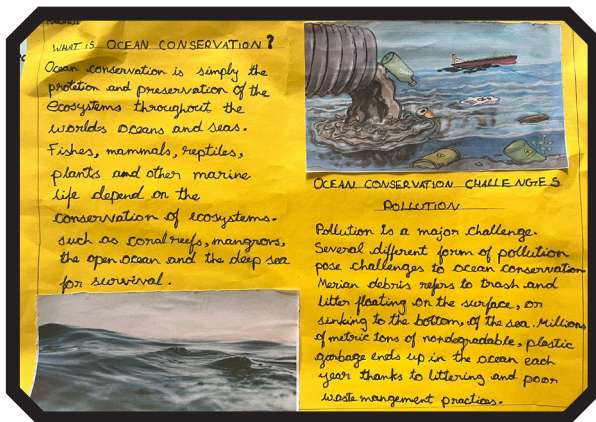 WHAT IS OCEAN CONSERVATION?
Ocean conservation is simply the
protetion and preservation of the
ecosystems throughout the
worldes oceans and seas.
Fishes, mammals, reptiles,
plants and other marine
life depend on the
conservation of ecosystems.
such as coral reefs, mangrons,
the open ocean and the deep sea
for survival.
OCEAN CONSERVATION CHALLENGES
POLLUTION
Pollution is a major challenge.
Several different form of pollution
pose challenges to ocean conservation
Merian debris refers to trash and
litter floating on the surface, or
sinking to the bottom, of the sea. Millions
of metric tons of nondegradable, plastic
garbage ends up in the ocean each
year thanks to littering and poor
waste mangement practices.